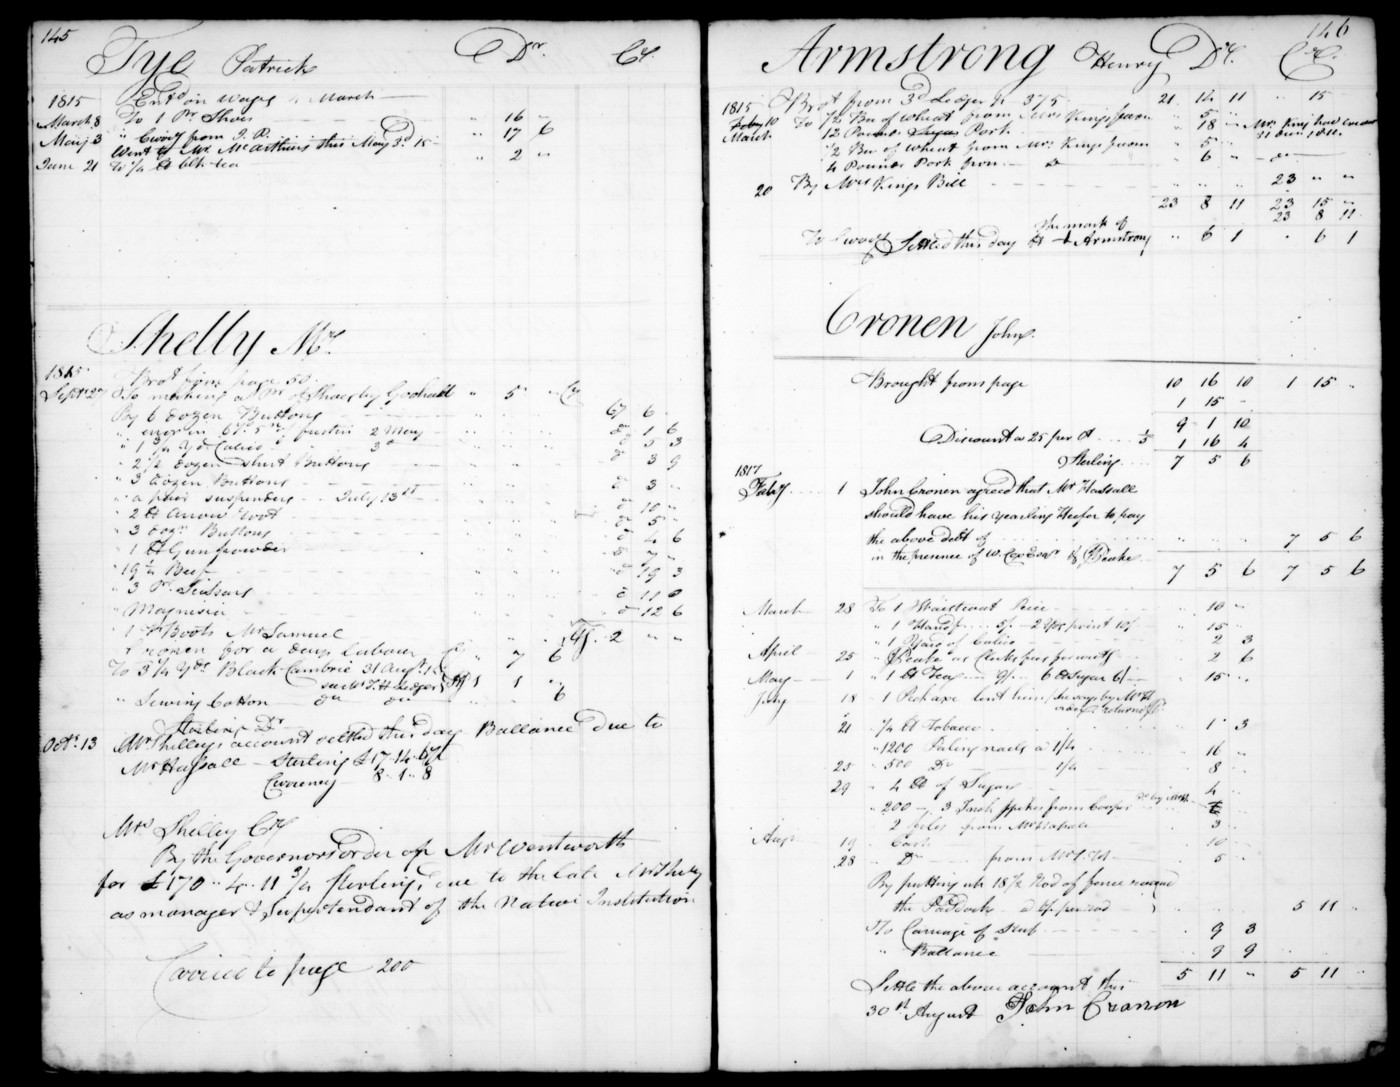 145
Tye Patrick Dr. Cr.
1815 Entd on wages March
March 8 To 1 Pr Shoes " 16 "
May 3 " Sundy from J. R. " 17 6
Went to Mr. McArthurs this May 3d 15
June 21 To 1/4 lt blk tea " 2 "
Shelly Mr.
1815 Brot from page 50
Septr 27 To making a Pr of Shoes by Goodhall " 5 "
By 6 Dozen Buttons 67 6
2 May 1 6
" 1 3/4 Yd Calico 3d 5 3
" 2 1/2 Dozen Shirt Buttons 3 9
" 3 Dozen Buttons 3 "
" a pair suspenders July 13th 10 "
" 2 lt Arrow Root 5 "
" 3 dozn Buttons 4 6
" 1 lt Gunpowder 7 "
" 19 1/2 Beef 19 3
" 3 Pr Scissars 11 0
" Magnesia 12 6
1 Pr Boots Mr Samuel 2 " "
Cronen for a days labour " 7 6
To 3 1/4 Yds Black Cambric 31 Augt 1 1 "
see Mr T. H Ledger
" Sewing Cotton do do 6
Sterling Dr
Octr 13 Mr Shelleys account settled this day Ballance due to
Mr Hassall - Sterling £17.14.6 1/2
Currency 8.1.8
Mrs Shelley Cr
By the Governors order of Mr Wentworth
for £170.4.11 3/4 Sterling, due to the late Mr Shelly
as manager & Supertendant of the Native Institution
Carried to page 200
146
Armstrong Henry Dr. Cr.
1815 Brot from 3d Ledger p 375 21 14 11 " 15 "
Feby 10 To 1/2 Bu of wheat from Mrs Kings farm " 5 "
March 12 Pounds Sugar Pork " 18 " Mrs King
1/2 Bu of Wheat from Mrs Kings farm " 5 "
4 Pounds Pork from Do " 6 "
20 By Mrs Kings Bill " " " 23 " "
23 8 11 23 15 "
23 8 11
The mark of
Settled this day H + Armstrong " 6 1 " 6 1
Cronen John.
Brought from page 10 16 10 1 15 "
1 15 "
9 1 10
Discount as 25 per Ct 1/5 1 16 4
Sterling 7 5 6
1817
Feby 1 John Cronen agreed that Mr Hassall
should have his yearling Heefer to pay
the above debt of " " " 7 5 6
in the presence of W. Cox Esqr & J Peake
7 5 6 7 5 6
March 28 To 1 Waistcoat Peice 10 "
" 1 Handf 5/- 2 Yds print 10/- 15 "
" 1 Yard of Calico 2 3
April 25 " Peake as Clerks fees for writh 2 6
May 1 " 1 lt Tea 9/- 6 lt Sugar 6/- 15 "
July 18 " 1 Pickaxe lent him
21 " 1/4 lt Tobacco 1 3
" 1200 Paling nails a 1/4 16 "
25 " 500 Do 1/4 8 "
29 " 4 lt of Sugar 4 "
" 200 - 3 Inch spikes from Cooper
2 files from Mr Hassall 3 "
Augt 19 Cash 10 "
28 " Do from Mr T. H 5 "
By putting up 18 1/2 Rod of fence round
the Paddock a 6/ per rod 5 11 "
To Carriage of Stuf 9 3
" Ballance 9 9
5 11 " 5 11 "
Settle the above account this
30st August John Cranon